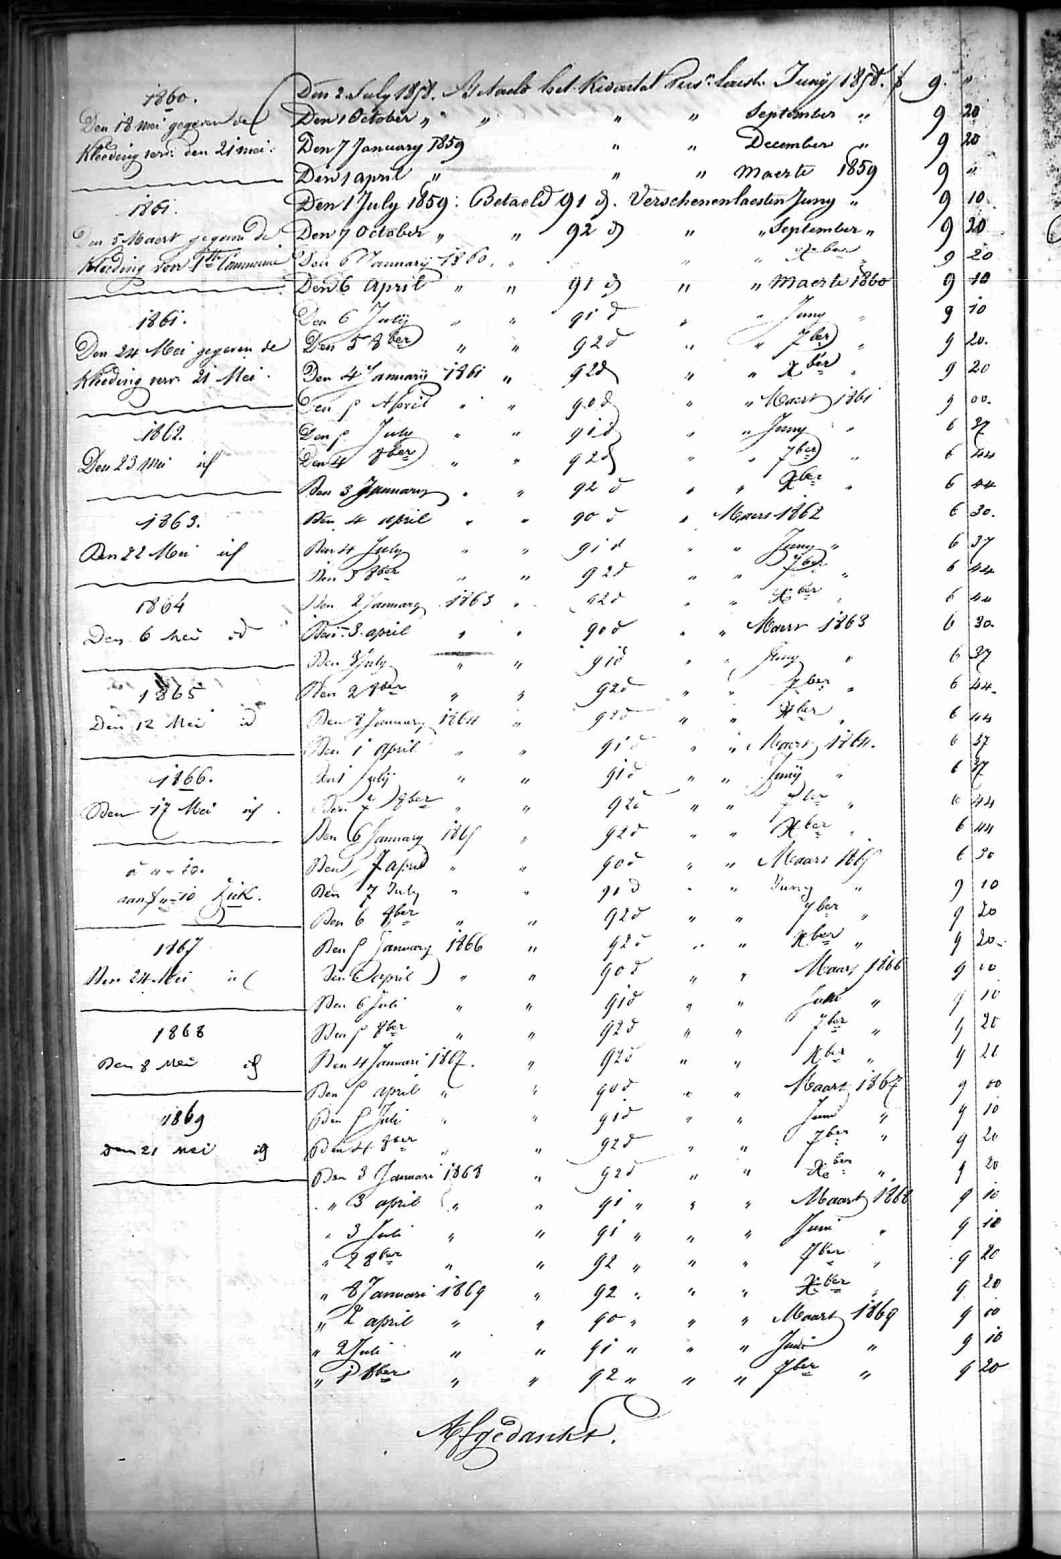 1860.
Den 18 mei gegeven de
Kleeding verv: den 21 mei.
1861.
Den 5 Maert gegeven de
Kleeding voor 1te Communie
1861.
Den 24 Mei gegeven de
Kleeding verv. 21 Mei.
1862.
Den 23 Mei id
1863.
Den 22 Mei id
1864
Den 6 Mei id
1865
Den 12 Mei id
1866.
Den 17 Mei id.
1867
Den 24 Mei id
1868
Den 8 Mei id
1869
Den 21 Mei id
Den 2 July 1858. Betaeld het Kwartal Vers. laest. Juny 1858. f 9. "
Den 1 October " " " " September " 9 20
Den 7 January 1859 " " December " 9 20
Den 1 april " " " Maerte 1859 9 "
Den 1 July 1859. Betaeld 91 d. Verschenen laesten Juny " 9 10
Den 7 October " " 92 d " " September " 9 20
Den 6 January 1860. " " " Xber 9 20
Den 6 April " " 91 d " " Maerte 1860 9 10
Den 6 July " " 91 d " " Juny " 9 10
Den 5 8ber " " 92 d " " 7ber " 9 20.
Den 4 January 1861 " 92 d " " Xber " 9 20
Den 5 April " " 90 d " " Maert 1861 9 00.
Den 5 July " " 91 d " " Juny " 6 37
Den 4 8ber " " 92 d " " 7ber " 6 44
Den 3 January " " 92 d " " Xber " 6 44
Den 4 april " " 90 d " Maers 1862 6 30.
Den 4 July " " 91 d " " Juny " 6 37
Den 3 8ber " " 92 d " " 7ber " 6 44
Den 2 January 1863 " 92 d " " Xber " 6 44
Den 3 april " " 90 d " " Maers 1863 6 30.
Den 3 July " " 91 d " " Juny " 6 37
Den 2 8ber " " 92 d " " 7ber " 6 44.
Den 8 January 1864 " 92 d " " Xber " 6 44
Den 1 april " " 91 d " " Maers 1864. 6 37
Den 1 July " " 91 d " " Juny " 6 37
Den 7 8ber " " 92 d " " 7ber " 6 44
Den 6 January 1865 " 92 d " " Xber " 6 44
Den 7 april " " 90 d " " Maars 1865 6 30
Den 7 July " " 91 d " " Juny " 9 10
Den 6 8ber " " 92 d " " 7ber " 9 20
Den 5 January 1866 " 92 d " " Xber " 9 20.
Den 6 april " " 90 d " " Maars 1866 9 00
Den 6 Juli " " 91 d " " Juni " 9 10
Den 5 8ber " " 92 d " " 7ber " 9 20
Den 4 Januari 1867. " 92 d " " Xber " 9 20
Den 5 april " " 90 d " " Maart 1867 9 00
Den 5 Juli " " 91 d " " Juni " 9 10
Den 4 8ber " " 92 d " " 7ber " 9 20
Den 3 Januari 1868 " 92 d " " Xber " 9 20
" 3 april " " 91 " " " Maart 1868 9 10
" 3 Juli " " 91 " " " Juni " 9 10
" 2 8ber " " 92 " " " 7ber " 9 20
" 8 Januari 1869 " 92 " " " Xber " 9 20
" 2 april " " 90 " " " Maart 1869 9 00
" 2 Juli " " 91 " " " Juni " 9 10
" 1 8ber " " 92 " " " 7ber " 9 20
Afgedankt.